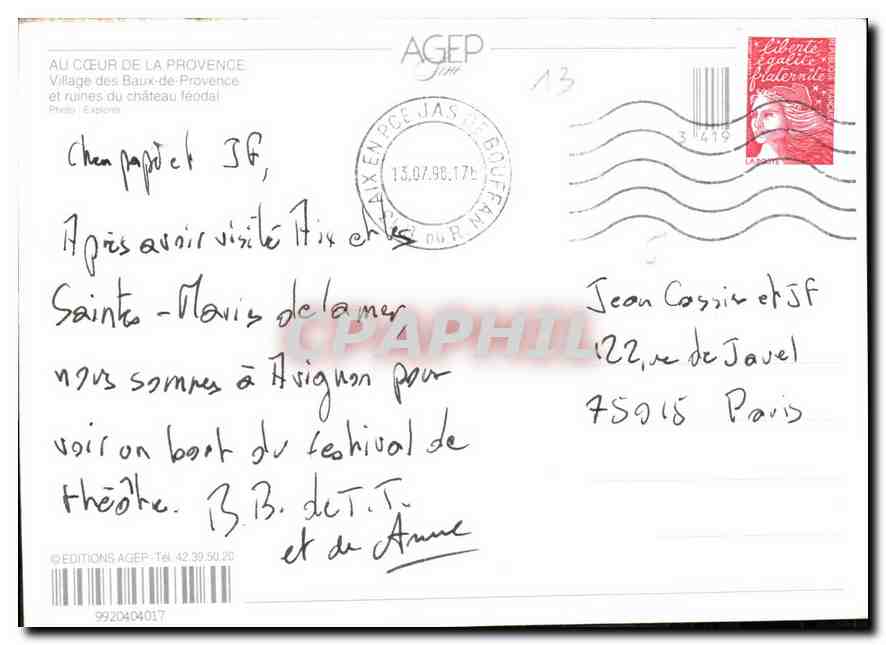 AU CŒUR DE LA PROVENCE
Village des Baux-de-Provence
et ruines du château féodal
Photo : Explorer
AGEP
13
AIX EN PCE JAS DE BOUFFAN
13.07.98.17h
B. DU R.
3 419
liberté
égalité
fraternité
RÉPUBLIQUE FRANÇAISE
LA POSTE
Cher papé et JF,
Après avoir visité Aix et les
Saintes-Maries de la mer
nous sommes à Avignon pour
voir un bout du festival de
théâtre. B.B. de T.T.
et de Anne
Jean Cassier et JF
122, rue de Javel
75015 Paris
CPAPHIL
© EDITIONS AGEP - Tél. 42.39.50.20
9920404017